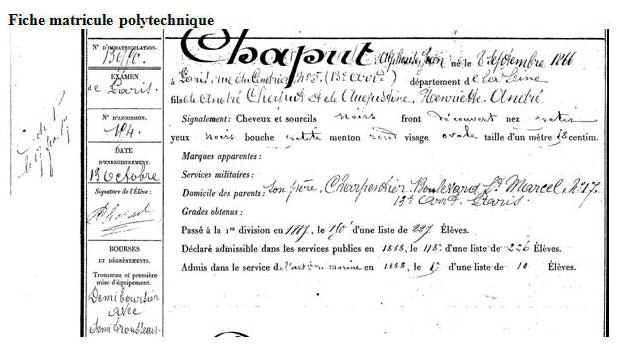 Fiche matricule polytechnique
N° D'IMMATRICULATION.
EXAMEN
de Paris.
N° D'ADMISSION.
184.
DATE
D'ENREGISTREMENT.
12 Octobre
Signature de l'Élève:
BOURSES
ET
DÉGRÈVEMENTS.
Trousseau et première
mise d'équipement.
Demi boursier
avec
demi trousseau.
Chaput, Alphonse, Jean né le 8 septembre 1866
à Paris, rue du (13e arrt) département de la Seine
fils de André Chaput et de Augustine, Henriette André.
Signalement: Cheveux et sourcils noirs front découvert nez
yeux noirs bouche petite menton rond visage ovale taille d'un mètre 68 centim.
Marques apparentes:
Services militaires:
Domicile des parents: son père, Charpentier Boulevard St Marcel, N° 17.
13e arrt. Paris.
Grades obtenus:
Passé à la 1re division en 1887, le d'une liste de 227 Élèves.
Déclaré admissible dans les services publics en 1888, le 118e d'une liste de 226 Élèves.
Admis dans le service de l'artie marine en 1888, le d'une liste de 10 Élèves.